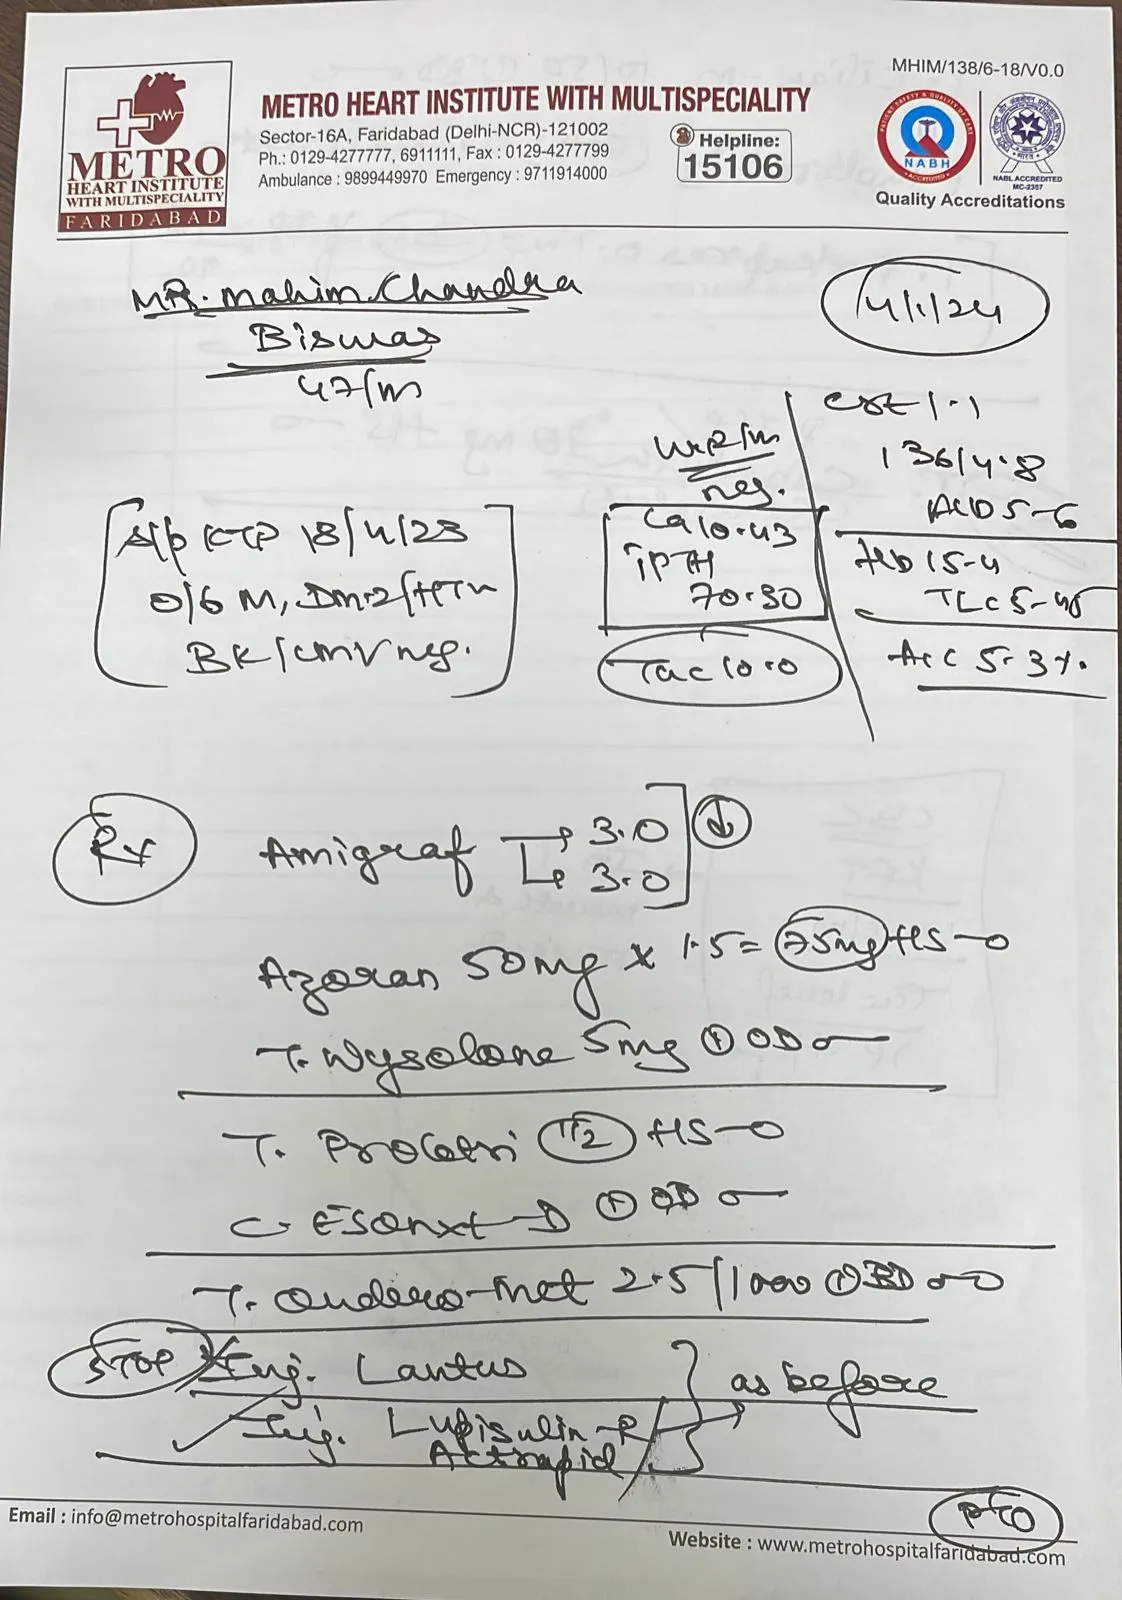 MHIM/138/6-18/V0.0
METRO
HEART INSTITUTE
WITH MULTISPECIALITY
FARIDABAD
METRO HEART INSTITUTE WITH MULTISPECIALITY
Sector-16A, Faridabad (Delhi-NCR)-121002
Ph.: 0129-4277777, 6911111, Fax : 0129-4277799
Ambulance : 9899449970 Emergency : 9711914000
Helpline:
15106
NABH
NABL ACCREDITED
MC-2357
Quality Accreditations
MR. Mahim Chandra
Biswas
47/M
4/1/24
neg.
Ca 10.43
iPTH
70.30
Tac 10.0
1.1
136/4.8
5.6
Hb 15.4
TLC 5.45
5.3%
KTP 18/4/23
DM-2/HTN
BK/CMV neg.
Rx
Amigraf → 3.0
↳ 3.0 ↓
Azoran 50mg x 1.5 = 75mg HS -0
T. Wysolone 5mg ① OD 0-
T. 1/2 HS -0
C. Esonxt-D ① OD 0-
T. Ondero-met 2.5/1000 ① BD 0-0
STOP Inj. Lantus
as before
Inj. Lupisulin-R/
Actrapid
PTO
Email : info@metrohospitalfaridabad.com
Website : www.metrohospitalfaridabad.com